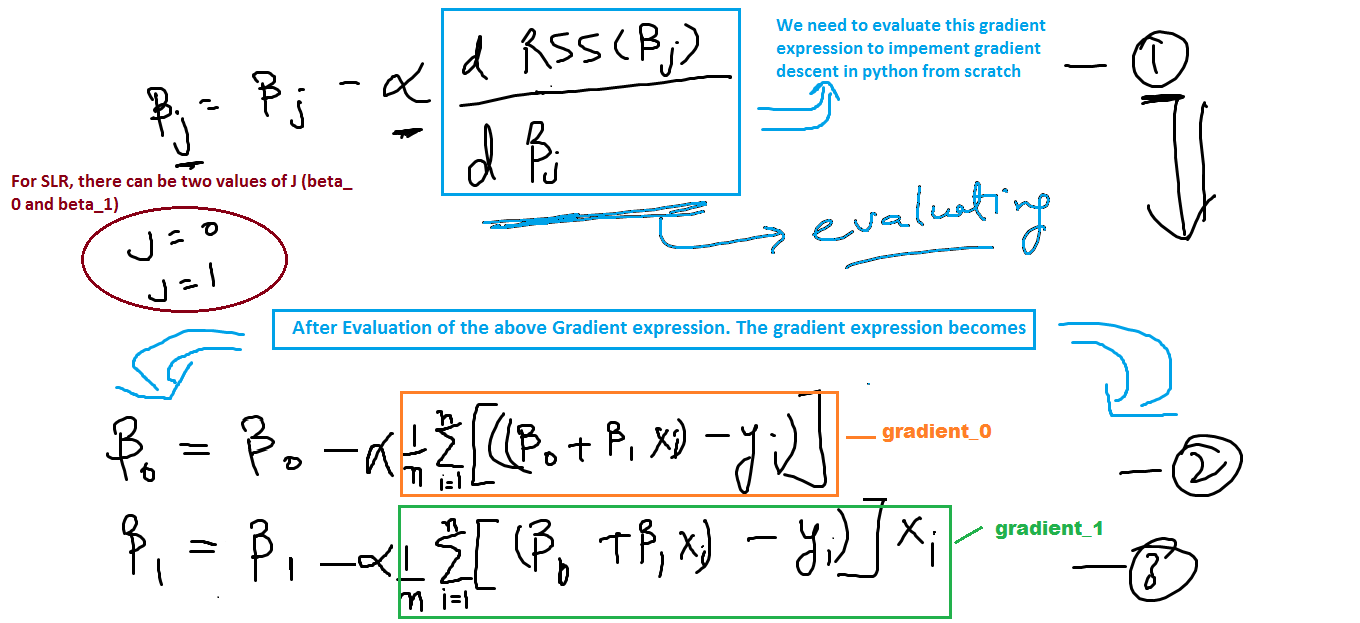 We need to evaluate this gradient
expression to impement gradient
descent in python from scratch
βj = βj - α d RSS(βj) / d βj — ①
For SLR, there can be two values of J (beta_
0 and beta_1)
J = 0
J = 1
evaluating
After Evaluation of the above Gradient expression. The gradient expression becomes
β₀ = β₀ - α 1/n Σ i=1 n [((β₀ + β₁ xi) - yi)] — gradient_0 — ②
β₁ = β₁ - α 1/n Σ i=1 n [(β₀ + β₁ xi) - yi)] xi gradient_1 — ③